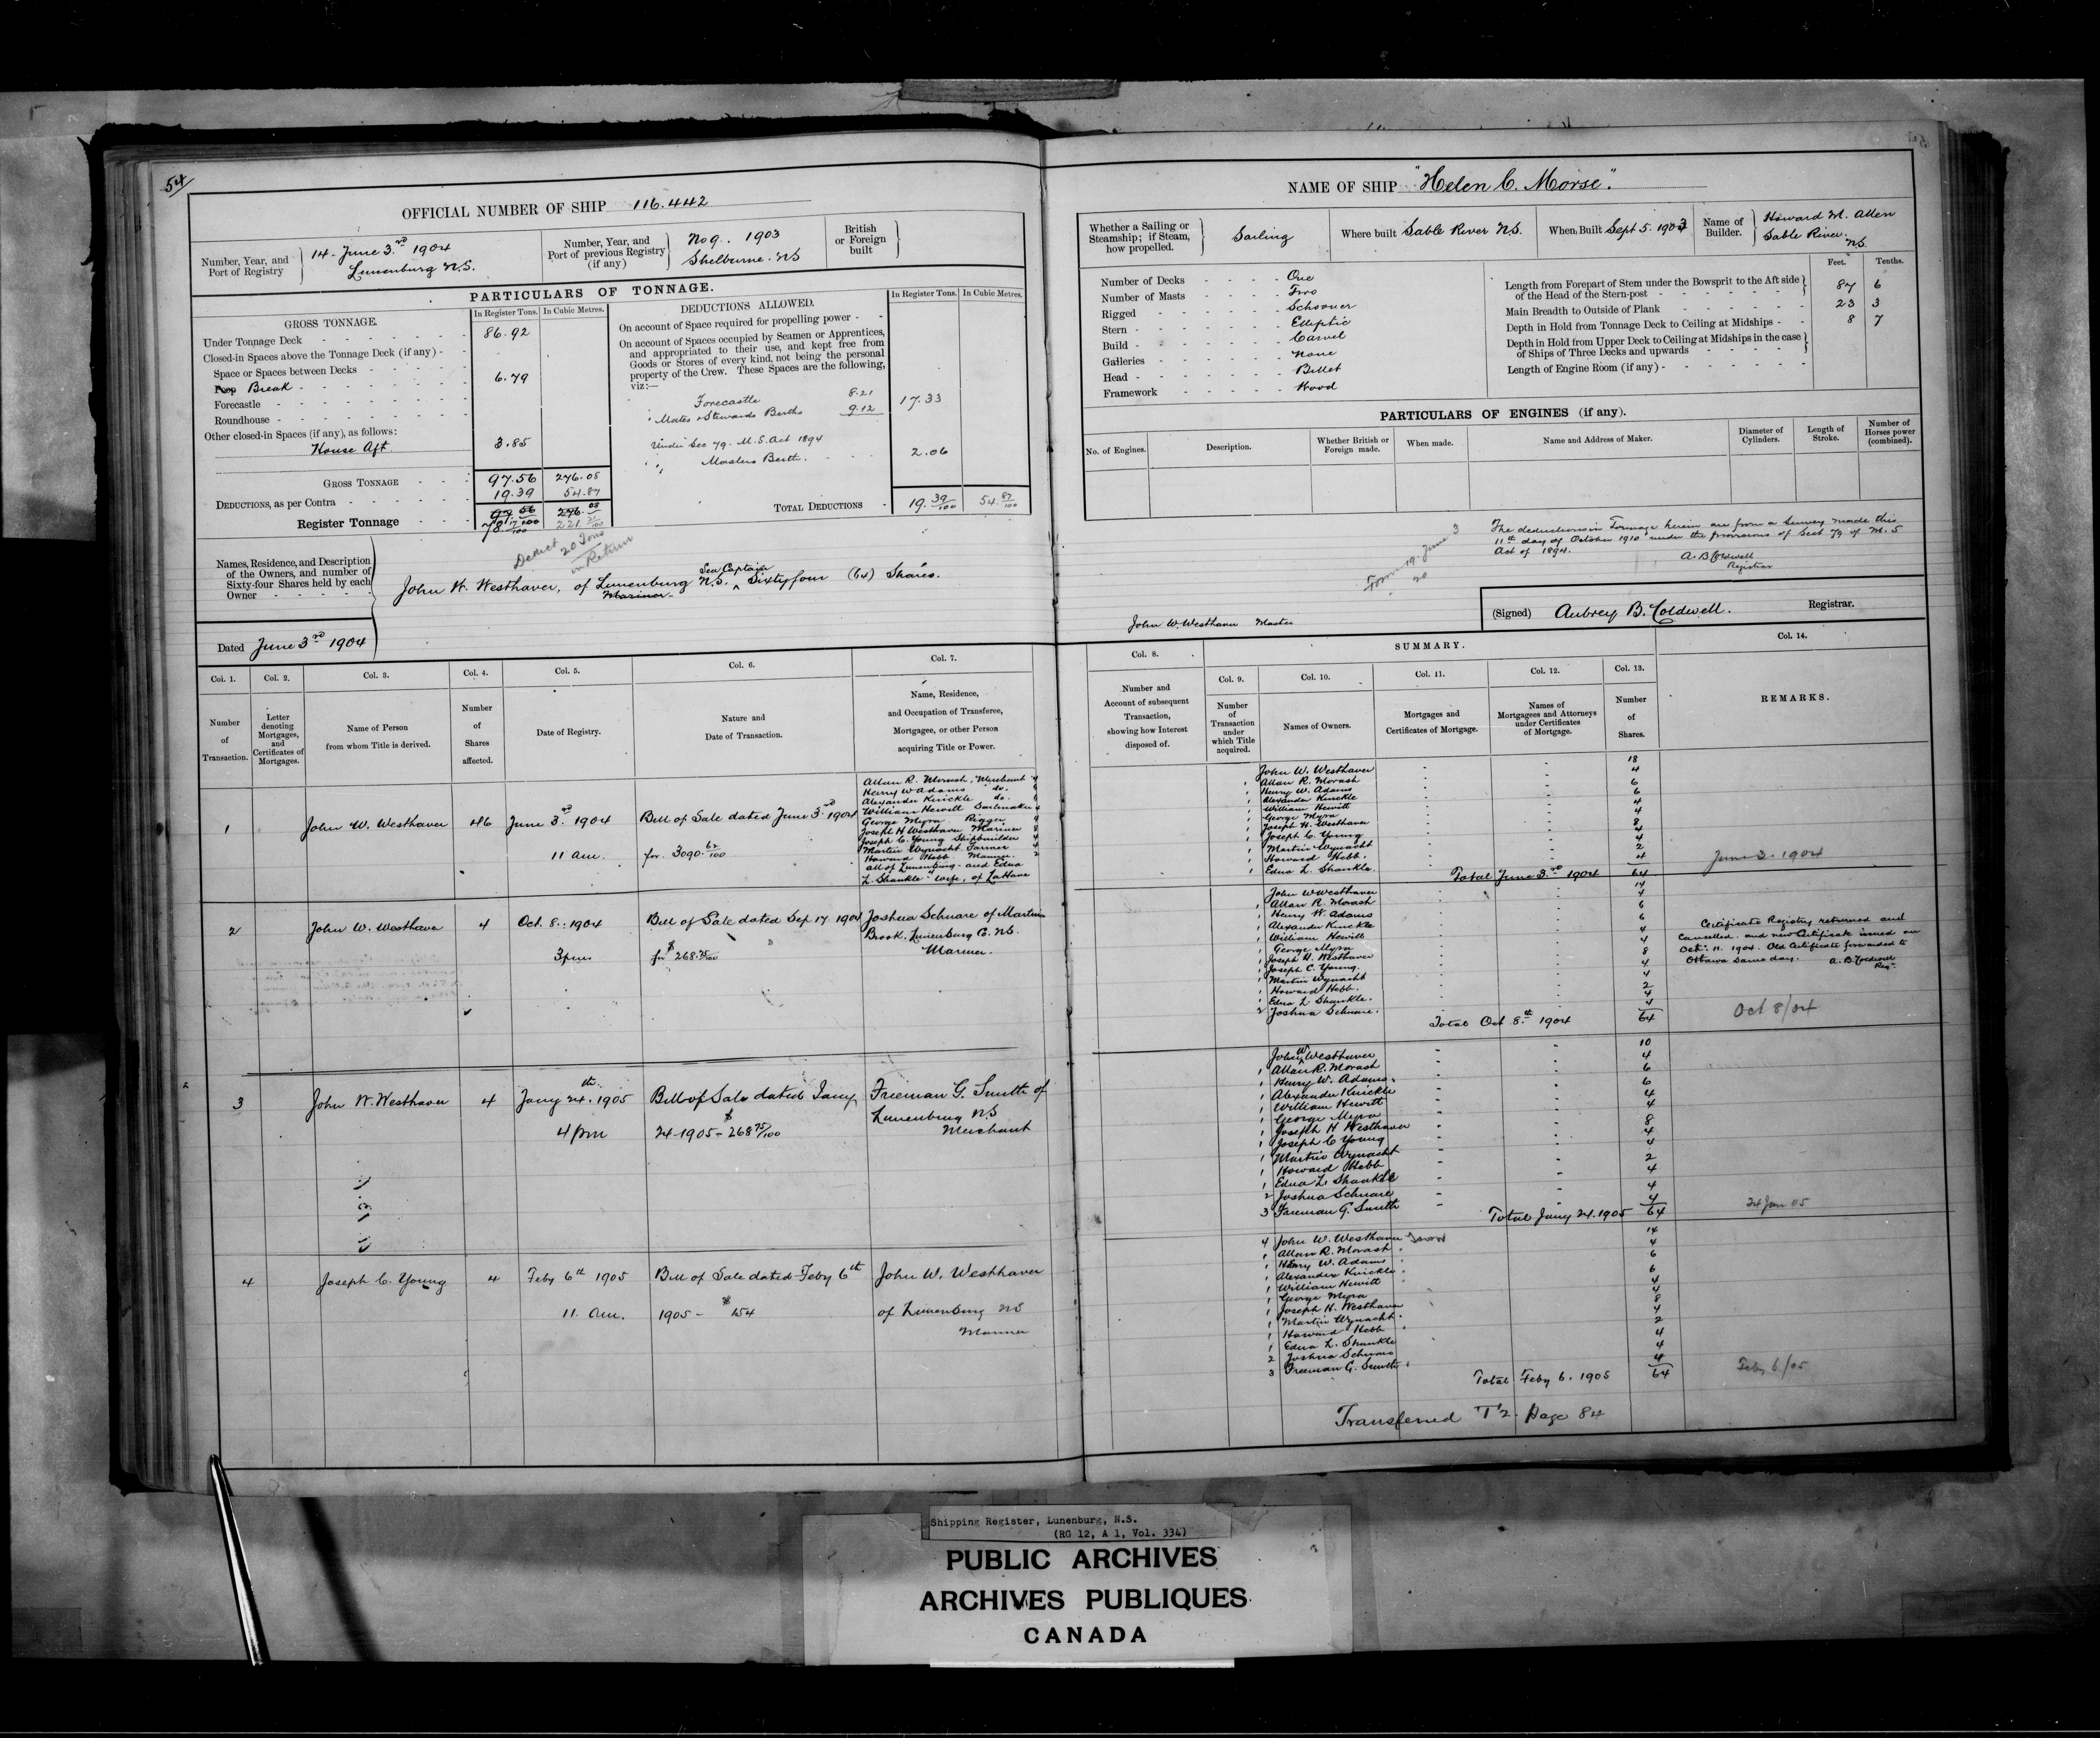 54
OFFICIAL NUMBER OF SHIP 116.442
Number, Year, and Port of Registry
14 - June 3rd 1904
Lunenburg N.S.
Number, Year, and Port of previous Registry (if any)
No 9. 1903
Shelburne. NS
British or Foreign built
PARTICULARS OF TONNAGE.
GROSS TONNAGE.
In Register Tons. In Cubic Metres.
Under Tonnage Deck 86.92
Closed-in Spaces above the Tonnage Deck (if any) -
Space or Spaces between Decks
Poop Break 6.79
Forecastle
Roundhouse
Other closed-in Spaces (if any), as follows:
House Aft. 3.85
GROSS TONNAGE 97.56 276.08
DEDUCTIONS, as per Contra 19.39 54.87
97 56 276.08
Register Tonnage 78 17/100 221 21/100
DEDUCTIONS ALLOWED.
In Register Tons. In Cubic Metres.
On account of Space required for propelling power -
On account of Spaces occupied by Seamen or Apprentices,
and appropriated to their use, and kept free from
Goods or Stores of every kind, not being the personal
property of the Crew. These Spaces are the following,
viz:—
Forecastle 8.21
Mates & Stewards Berths 9.12 17.33
Under Sec 79 - M.S. Act 1894
" " Masters Berth. 2.06
TOTAL DEDUCTIONS 19. 39/100 54. 87/100
Deduct 20 Tons in Return
Names, Residence, and Description
of the Owners, and number of
Sixty-four Shares held by each
Owner
John W. Westhaver, of Lunenburg N.S. Sea Captain Sixtyfour (64) Shares.
Mariner
Dated June 3rd 1904
Col. 1. Col. 2. Col. 3. Col. 4. Col. 5. Col. 6. Col. 7.
Number of Transaction.
Letter denoting Mortgages, and Certificates of Mortgages.
Name of Person from whom Title is derived.
Number of Shares affected.
Date of Registry.
Nature and Date of Transaction.
Name, Residence, and Occupation of Transferee, Mortgagee, or other Person acquiring Title or Power.
1 John W. Westhaver 46 June 3rd. 1904 Bill of Sale dated June 3rd 1904
11 am. for 3090. 62/100
Allan R. Morash, Merchant 4
Henry W Adams do. 6
Alexander Knickle do. 6
William Hewitt Sailmaker 4
George Myra Rigger 4
Joseph H Westhaver Mariner 8
Joseph C. Young Shipbuilder 4
Martin Wynacht Farmer 4
Howard Hebb Mariner. 2
all of Lunenburg - and Edna
L. Shankle wife, of LaHave
2 John W. Westhaver 4 Oct. 8.: 1904 Bill of Sale dated Sep 17. 1904 Joshua Schnare of Martins
3 pm for $268.75/100 Brook. Lunenburg Co. NS.
Mariner.
3 John W. Westhaver 4 Jany 24th. 1905 Bill of Sale dated Jany Freeman G. Smith of
4 pm 24-1905 - $268 75/100 Lunenburg NS
Merchant
4 Joseph C. Young 4 Feby 6th 1905 Bill of Sale dated Feby 6th John W. Westhaver
11. am. 1905 - $154 of Lunenburg NS
Mariner
NAME OF SHIP "Helen C. Morse".
Whether a Sailing or Steamship; if Steam, how propelled.
Sailing
Where built Sable River N.S.
When Built Sept 5. 1903
Name of Builder.
Howard M. Allen
Sable River.
NS.
Number of Decks One
Number of Masts Two
Rigged Schooner
Stern Elliptic
Build Carvel
Galleries none
Head Billet
Framework Wood
Feet. Tenths.
Length from Forepart of Stem under the Bowsprit to the Aft side
of the Head of the Stern-post 87 6
Main Breadth to Outside of Plank 23 3
Depth in Hold from Tonnage Deck to Ceiling at Midships 8 7
Depth in Hold from Upper Deck to Ceiling at Midships in the case
of Ships of Three Decks and upwards
Length of Engine Room (if any)
PARTICULARS OF ENGINES (if any).
No. of Engines. Description. Whether British or Foreign made. When made. Name and Address of Maker. Diameter of Cylinders. Length of Stroke. Number of Horses power (combined).
The deductions in Tonnage herein are from a Survey made this
11th day of October 1910 under the provisions of Sect 79 of M.S
Act of 1894.
A. B Coldwell
Registrar
Form 19. June 3
20
John W. Westhaver Master
(Signed) Aubrey B. Coldwell. Registrar.
SUMMARY.
Col. 8. Col. 9. Col. 10. Col. 11. Col. 12. Col. 13. Col. 14.
Number and Account of subsequent Transaction, showing how Interest disposed of.
Number of Transaction under which Title acquired.
Names of Owners.
Mortgages and Certificates of Mortgage.
Names of Mortgagees and Attorneys under Certificates of Mortgage.
Number of Shares.
REMARKS.
John W. Westhaver 18
1 Allan R. Morash 4
1 Henry W. Adams 6
1 Alexander Knickle 6
1 William Hewitt 4
1 George Myra 4
1 Joseph H. Westhaver 8
1 Joseph C. Young 4
1 Martin Wynacht 4
1 Howard Hebb. 2
1 Edna L. Shankle. 4
Total June 3rd 1904 64
June 3. 1904
John W Westhaver 14
1 Allan R. Morash 4
1 Henry W. Adams 6
1 Alexander Knickle 6
1 William Hewitt 4
1 George Myra 4
1 Joseph H. Westhaver 8
1 Joseph C. Young. 4
1 Martin Wynacht 4
1 Howard Hebb. 2
1 Edna L Shankle. 4
2 Joshua Schnare. 4
Total Oct 8th. 1904 64
Certificate Registry returned and
cancelled and new Certificate issued on
Oct. 11. 1904. Old Certificate forwarded to
Ottawa same day. A. B. Coldwell
Reg.
Oct 8/04
John W Westhaver 10
1 Allan R. Morash 4
1 Henry W. Adams 6
1 Alexander Knickle 6
1 William Hewitt 4
1 George Myra 4
1 Joseph H Westhaver 8
1 Joseph C Young 4
1 Martin Wynacht 4
1 Howard Hebb 2
1 Edna L. Shankle 4
2 Joshua Schnare 4
3 Freeman G. Smith 4
Total Jany 24. 1905 64
24 Jan 05
4 John W. Westhaver 14
1 Allan R. Morash 4
1 Henry W. Adams 6
1 Alexander Knickle 6
1 William Hewitt 4
1 George Myra 4
1 Joseph H. Westhaver 8
1 Martin Wynacht 4
1 Howard Hebb 2
1 Edna L. Shankle 4
2 Joshua Schnare 4
3 Freeman G. Smith 4
Total Feby 6. 1905 64
Feby 6/05
Transferred T 2. Page 84
Shipping Register, Lunenburg, N.S.
(RG 12, A 1, Vol. 334)
PUBLIC ARCHIVES
ARCHIVES PUBLIQUES
CANADA